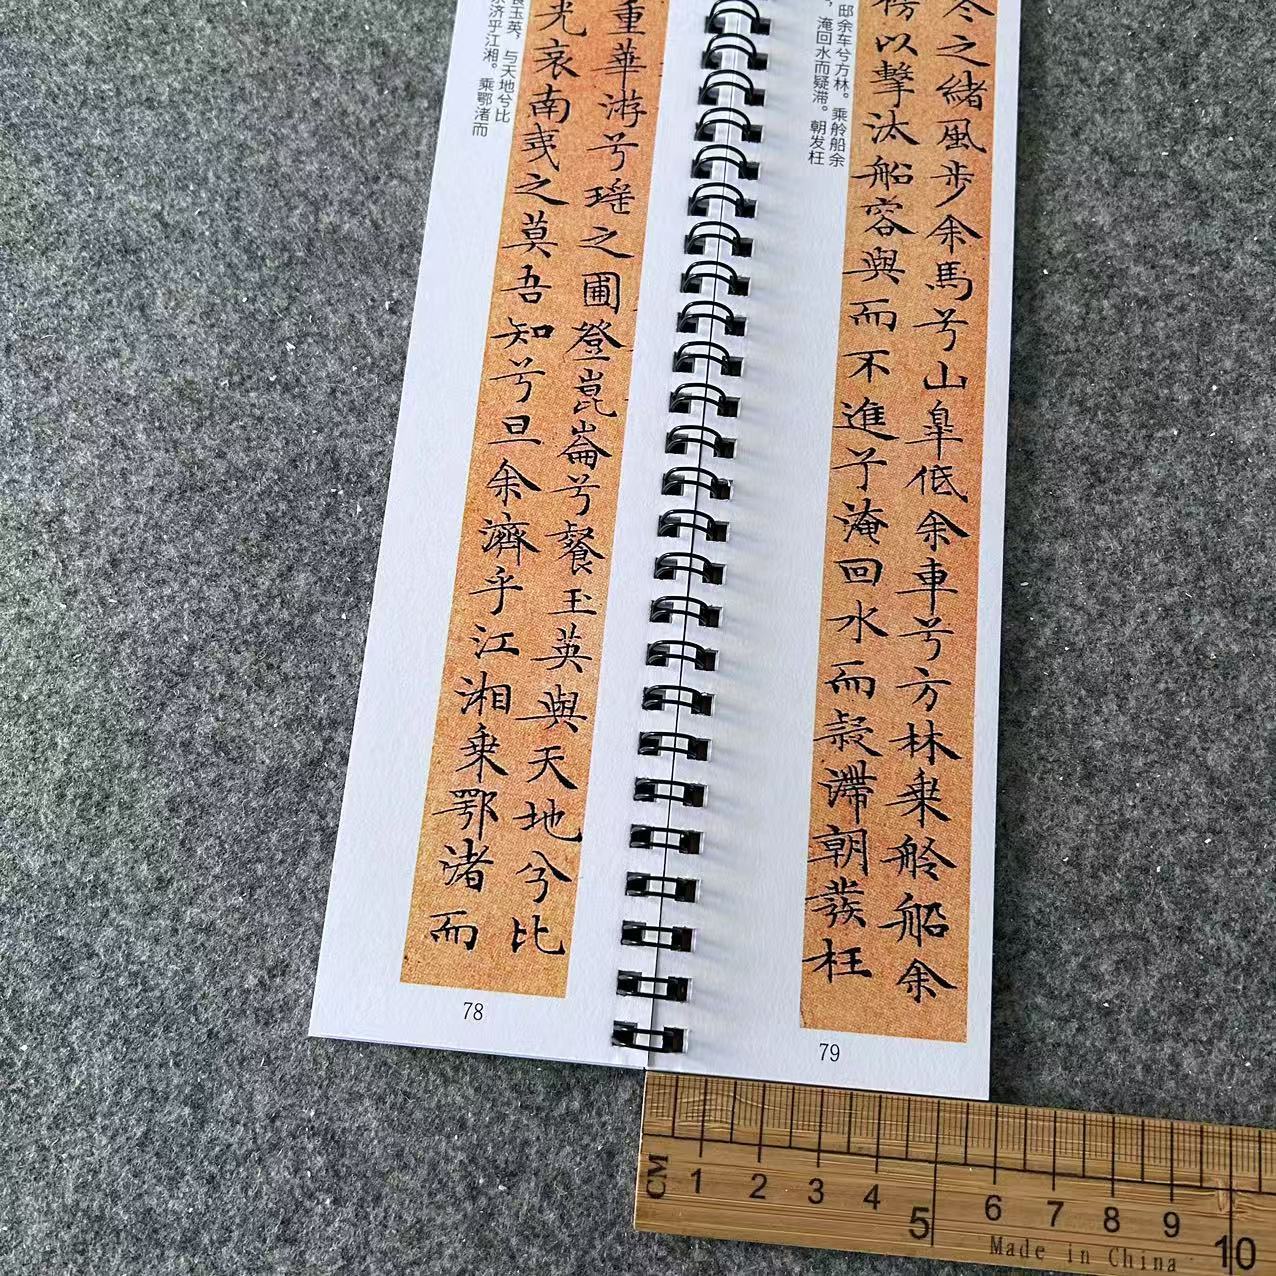 重華游兮瑶之圃登崑崙兮餐玉英與天地兮比
光哀南夷之莫吾知兮旦余濟乎江湘乗鄂渚而
玉英，与天地兮比
济乎江湘。乘鄂渚而
78
之緒風步余馬兮山皐低余車兮方林乗舲船余
以擊汰船容與而不進兮淹回水而疑滯朝發枉
邸余车兮方林。乘舲船余
淹回水而疑滞。朝发枉
79
CM 1 2 3 4 5 6 7 8 9 10
Made in China